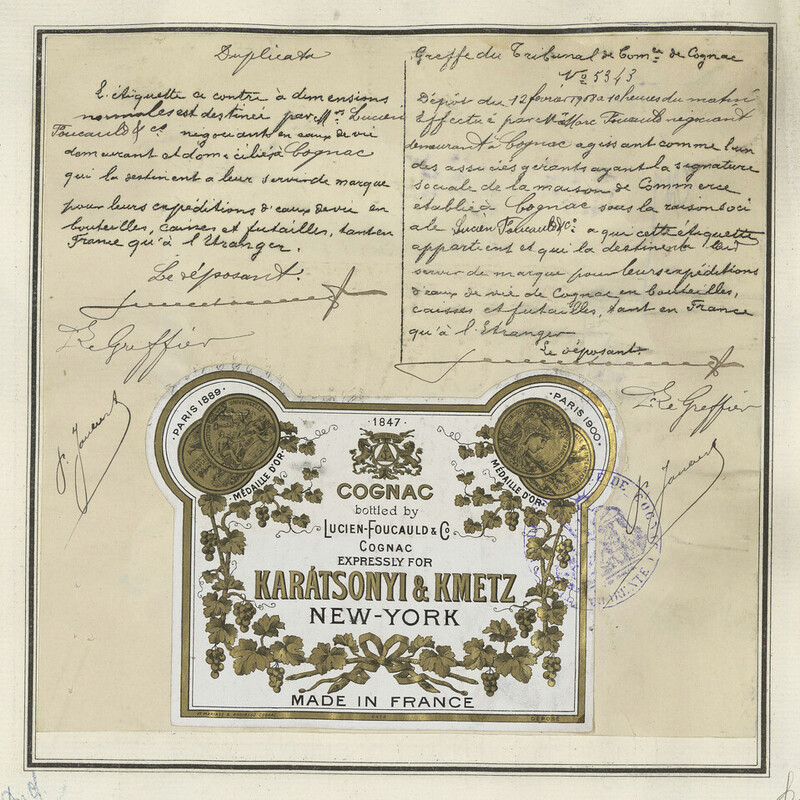 Duplicata
L'étiquette ci contre à dimensions
normales est destinée par Mrs Lucien
Foucauld & Co négociants en eaux de vie
demeurant et domiciliés à Cognac
qui la destinent a leur servir de marque
pour leurs expéditions d'eaux de vie en
bouteilles, caisses et futailles, tant en
France qu'à l'Etranger.
Le déposant.
Le Greffier
Greffe du Tribunal de Comce de Cognac
No 5343
Dépôt du 12 février 1908 a 10 heures du matin
Effectué par Mr Marc Foucauld négociant
demeurant à Cognac agissant comme l'un
des associés gérants ayant la signature
sociale de la maison de Commerce
établie à Cognac sous la raison soci
ale Lucien Foucauld & Co a qui cette étiquette
appartient et qui la destine a leur
servir de marque pour leurs expéditions
d'eaux de vie de Cognac en bouteilles,
caisses et futailles, tant en France
qu'à l'Etranger
Le déposant.
Le Greffier
PARIS 1889
MÉDAILLE D'OR
PARIS 1900
MÉDAILLE D'OR
1847
COGNAC
bottled by
LUCIEN-FOUCAULD & Co
COGNAC
EXPRESSLY FOR
KARÁTSONYI & KMETZ
NEW-YORK
MADE IN FRANCE
DÉPOSÉ